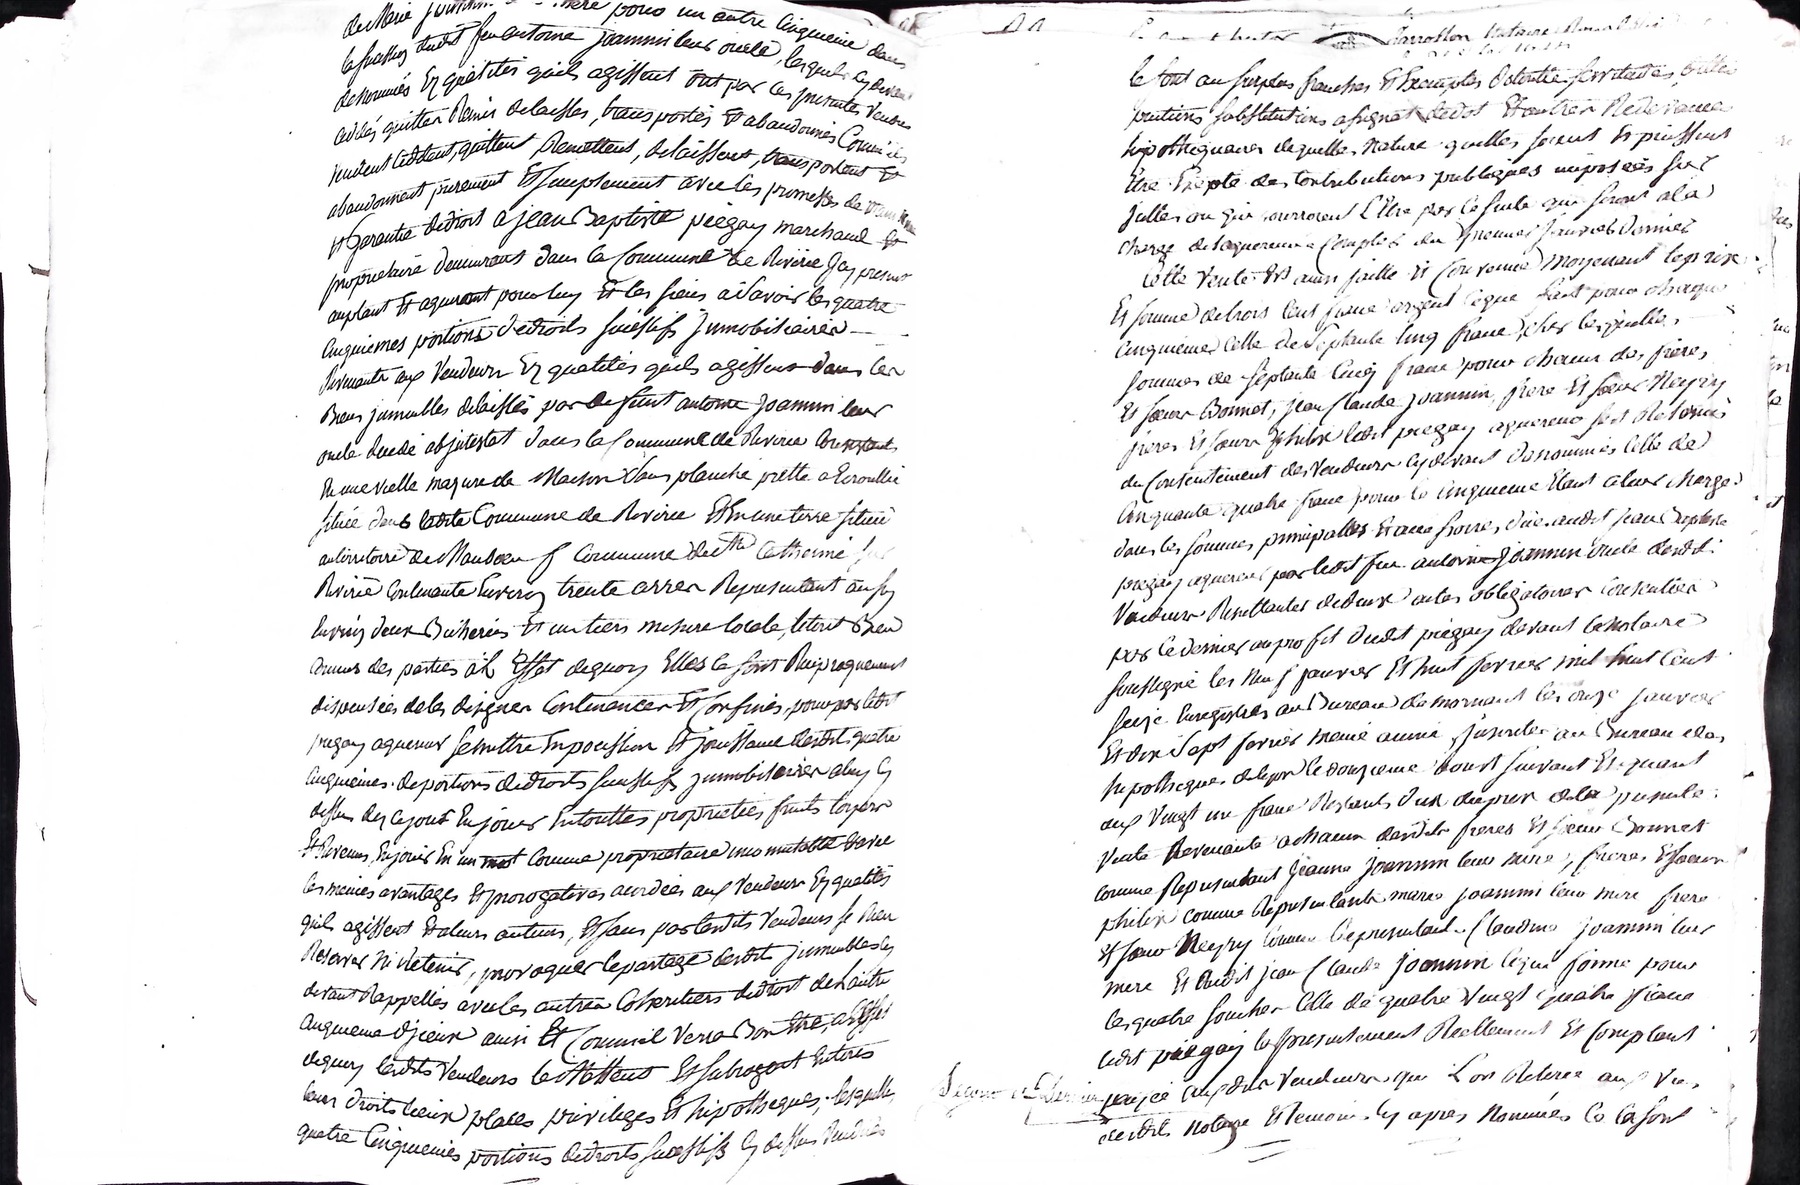 de Marie Joannin leur mere pour un autre Cinquieme dans
la succession dudit feu antoine joannin leur oncle, lesquels cy devant
denommés Ez qualités quils agissent ont par ces presentes vendus
cédés quittés Remis delaissés, transportés Et abandonnés Comme ils
vendent Cèdent, quittent, Remettent, delaissent, transportent Et
abandonnent purement Et simplement avec les promesses de maintenue
Et Garantie de droit a jean Baptiste piégay marchand Et
proprietaire demeurant dans la Commune de Riverie Icy present
acceptant Et aquerant pour luy Et les siens à savoir les quatre
Cinquiemes portions de droits successifs jmmobiliaires
Revenants aux Vendeurs Ez qualités quils agissent dans les
Biens jmmeubles delaissés par defunt antoine Joannin leur
oncle décédé abjntestat dans la Commune de Riverie Consistants
En une vielle mazure de Maison sans planché prette a Ecroullée
située dans ladite Commune de Riverie Et En une terre située
au territoire de Commune de Ste Catherine sur
Riverie Contenante Environ trente arres Representant au soy
Environ deux Bicherées Et un tiers mesure locale, le tout Bien
Connus des parties à l'Effet de quoy Elles se sont Reciproquement
dispensées de les designer Continences Et Confinés, pour par ledit
piegay aquereur se mettre En possession Et jouissance desdits quatre
Cinquiemes de portions de droits successifs jmmobiliaires aluy cy
dessus dez ce jour En jouir En touttes proprietées fruits loyers
Et Revenus, En jouir En un mot Comme proprietaire incommutable avec
les memes avantages Et prerogatives accordées aux Vendeurs Ez qualités
quils agissent Et a leurs auteurs, Et sans par lesdits Vendeurs se Rien
Reserver Ni Retenir, provoquer le partage desdits jmmeubles cy
devant Rappellés avec les autres Coheritiers de droit de l'autre
Cinquieme d'jceux ainsi Et Comme il Verra Bon Etre, a l'Effet
de quoy lesdits Vendeurs le Mettent Et subrogent En tous
leurs droits lieux places privileges Et hipotheques, lesquelles
quatre Cinquiemes portions de droits successifs cy dessus Vendues
le sont au surplus franches Et Exemptes de toutte servitudes, dettes
pentions substitutions assignat de dot Et autres Redevance
hipothequaires de quelles Nature quelles soient Et puissent
Etre Excepté des Contributions publiques imposées sur
jcelles ou qui pourroient l'Etre par la suite qui seront a la
charge de l'aquereur a Compter du premier janvier dernier
Cette vente Est ainsi faitte Et Convenue moyenant le prix
Et somme de trois Cent francs argent ce qui fait pour chaque
Cinquieme Celle de septante Cinq francs, sur lesquelles
sommes de septante Cinq francs pour chacun des freres
Et sœurs Bonnet, jean Claude joannin, frere Et sœur Neyry
freres Et sœurs philix ledit piegay aquereur s'est Retenu
du Consentement des Vendeurs cy devant denommés Celle de
Cinquante quatre francs pour le Cinquieme Etant a leur charge
dans les sommes principalles Et accessoires, due audit jean Baptiste
piegay aquereur par ledit feu antoine joannin oncle desdits
Vendeurs Resultantes de deux actes obligatoires Consenties
par ce dernier au profit dudit piegay devant le Notaire
soussigné les Neuf janvier Et huit fevrier mil huit Cent
seize Enregistrés au Bureau de mornant les onze janvier
Et dix sept fevrier meme année, jnscrites au Bureau des
hipotheques de lyon le douzieme aoust suivant Et quant
aux vingt un francs Restants dus du prix de la presente
Vente Revenante a chacun desdits freres Et sœur Bonnet
comme Representant jeanne joannin leur mere, freres Et sœurs
philix comme Representants marie joannin leur mere frere
Et sœur Neyry Comme Representant Claudine joannin leur
mere Et dudit jean Claude joannin ce qui forme pour
les quatre souches Celle de quatre vingt quatre francs
ledit piegay la presentement Reellement Et Comptant
payée auxdits Vendeurs qui l'on Retirée aux vue
desdits Notaire Et temoins cy apres Nommés Ce la font